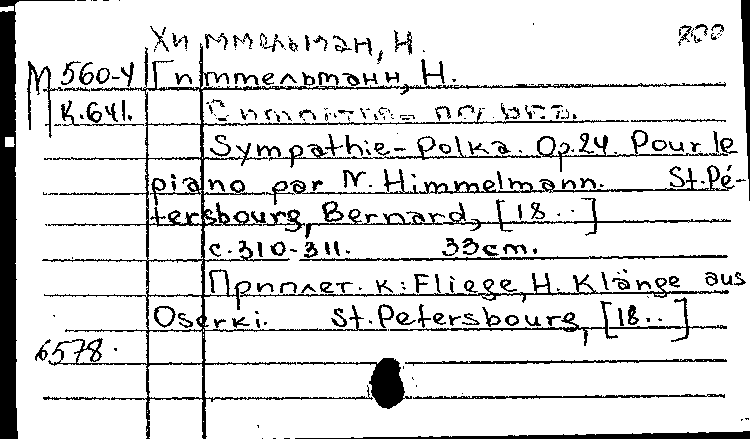 Химмельман, Н. 200
М 560-4 Гиммельманн, Н.
К.641. Симпатия= полька.
Sympathie-Polka. Op.24. Pour le
piano par N. Himmelmann. St.Pé-
tersbourg, Bernard, [18..]
с.310-311. 33cm.
Приплет. к: Fliege, H. Klänge aus
Oserki. St.Petersbourg, [18..]
6578.